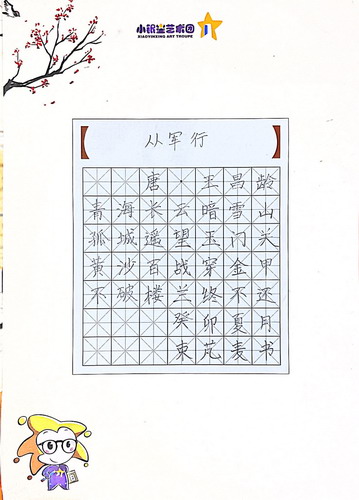 小银星艺术团
XIAOYINXING ART TROUPE
从军行
唐·王昌龄
青海长云暗雪山
孤城遥望玉门关
黄沙百战穿金甲
不破楼兰终不还
癸卯夏月
束芃麦书